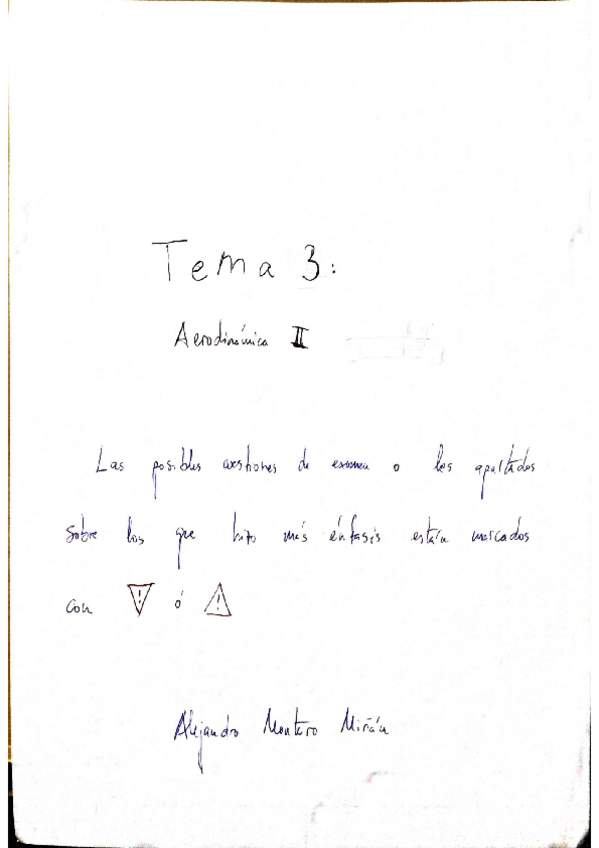 Tema 3:
Aerodinámica II
Las posibles cuestiones de examen o los apartados
sobre los que hizo más énfasis están marcados
con ⚠ ó ⚠
Alejandro Montero Miñán